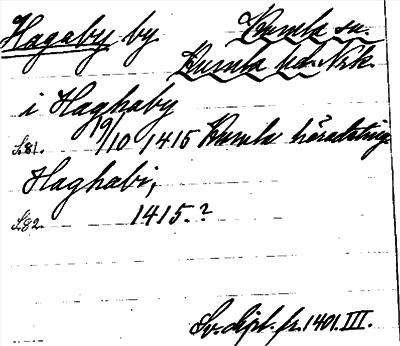 Hagaby by Kumla sn.
Kumla hd. Nrk.
i Haghaby
S. 81. 19/10 1415 Kumla häradsting
Haghabi,
S. 82. 1415.?
Sv. dipl. fr. 1401. III.